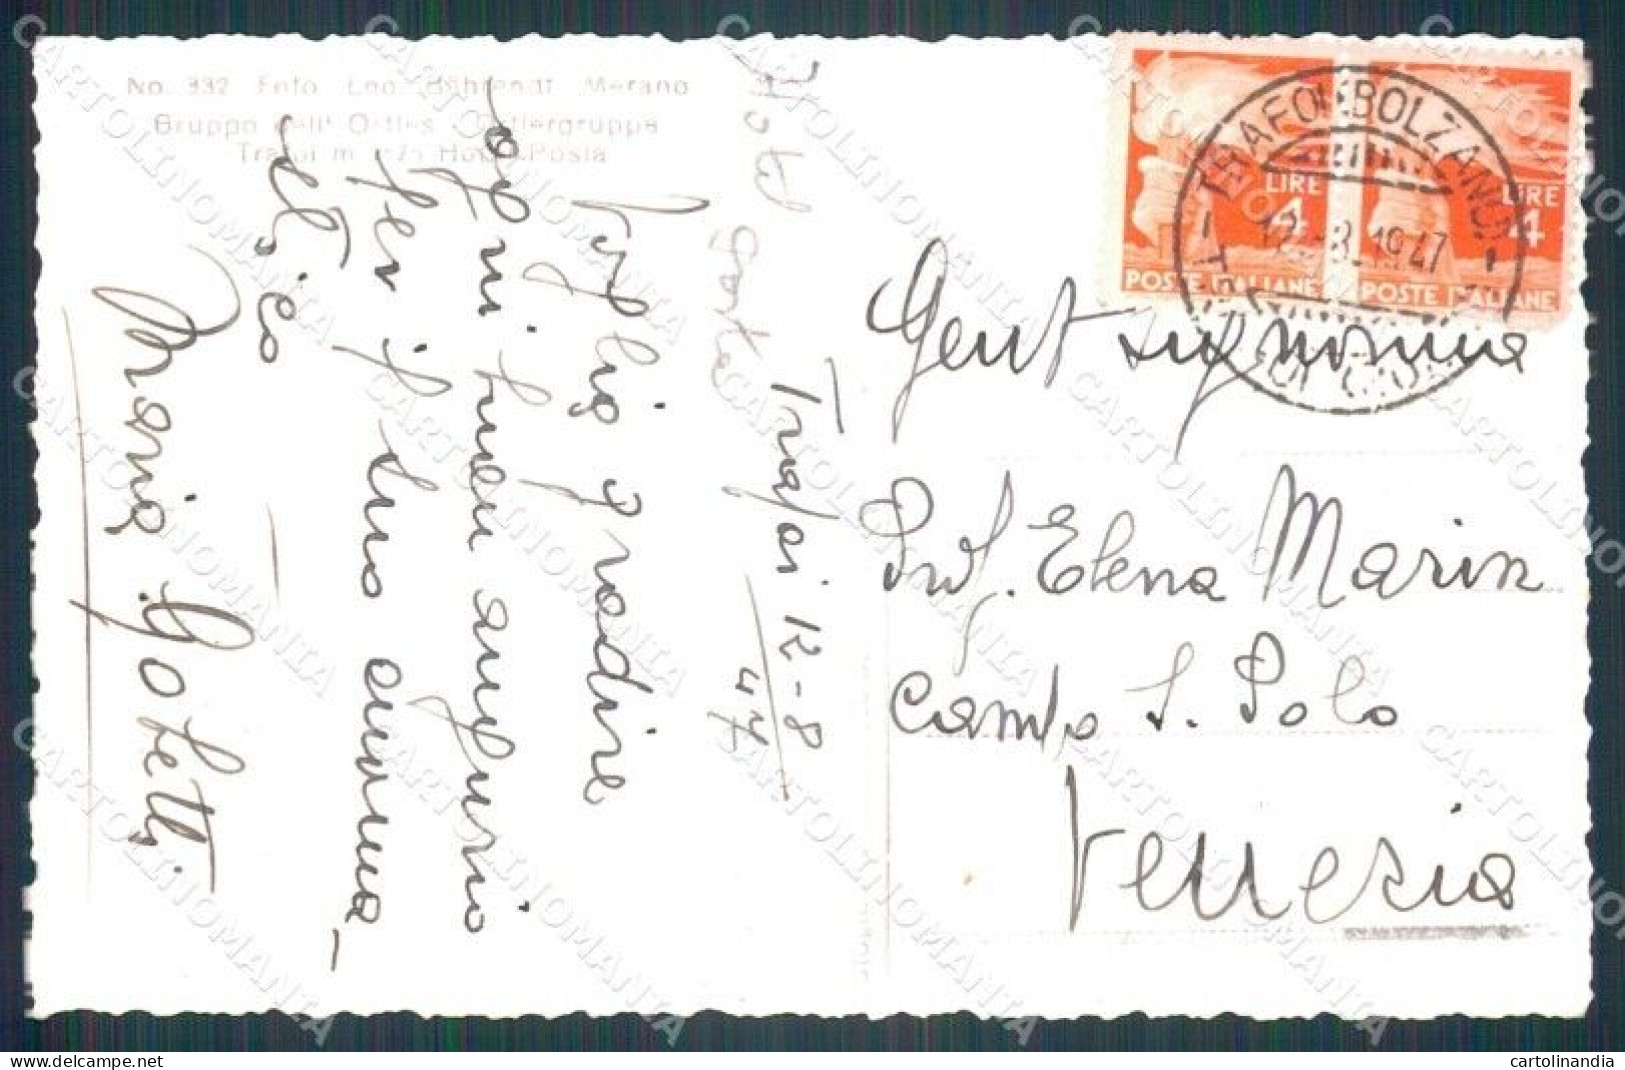 No. 332 Foto Leo Bährendt Merano
Gruppo dell' Ortles - Ortlergruppe
Trafoi m. 1570 Hotel Posta
Trafoi 12-8
47
Voglio gradire
ogni buon augurio
per il suo onoma_
stico
Maria Gobetti
LIRE 4
POSTE ITALIANE
LIRE 4
POSTE ITALIANE
TRAFOI (BOLZANO)
12.-8.1947
Gent signorina
Prof. Elena Marin
Campo S. Polo
Venezia
CARTOLINOMANIA
www.delcampe.net
cartolinandia